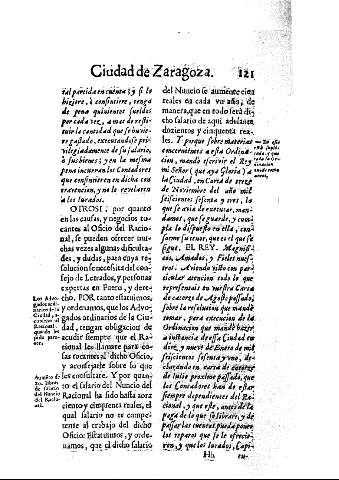 Ciudad de Zaragoza. 121
tal partida en cuenta; y si lo
hiziere, ò consintiere, tenga
de pena quinientos sueldos
por cada vez, a mas de resti-
tuir la cantidad que se huvie-
re gastado, executandose pri-
vilegiadamente de su salario,
ò sus bienes; y en la mesma
pena incurran los Contadores
que consintieren en dicha con-
travencion, y no lo revelaren
à los Jurados.
OTROSI, por quanto
en las causas, y negocios to-
cantes al Oficio del Racio-
nal, se pueden ofrecer mu-
chas vezes algunas dificulta-
des, y dudas, para cuya re-
solucion se necessita del con-
sejo de Letrados, y personas
expertas en Fuero, y dere-
cho. POR tanto estatuimos,
y ordenamos, que los Advo-
gados ordinarios de la Ciu-
dad, tengan obligacion de
acudir siempre que el Ra-
cional les llamare para co-
sas tocantes al dicho Oficio,
y aconsejarle sobre lo que
les consultare. Y por quan-
to el salario del Nuncio del
Racional ha sido hasta aora
ciento y cinquenta reales, el
qual salario no es compe-
tente al trabajo del dicho
Oficio: Estatuimos, y orde-
namos, que el dicho salario
Los Advo-
gados ordi-
narios de la
Ciudad, a-
consejen al
Racional,
quando les
pida pare-
cer.
Aumento de
20. libras,
de salario
del Nuncio
del Racio-
nal.
del Nuncio se aumente cien
reales en cada vn año; de
manera, que en todo serà di-
cho salario de aqui adelante
dozientos y cinquenta rea-
les. Y porque sobre materias
concernientes a esta Ordina-
cion, mandò escrivir el Rey
mi Señor (que aya Gloria) a
la Ciudad, en Carta de treze
de Noviembre del año mil
seiscientos sesenta y tres, lo
que se avia de executar, man-
damos, que se guarde, y cum-
pla lo dispuesto en ella, con-
forme su tenor, que es el que se
sigue. EL REY. Magnifi-
cos, Amados, y Fieles nues-
tros. Aviendo visto con par-
ticular atencion todo lo que
representais en vuestra Carta
de catorze de Agosto passado,
sobre la resolucion que mandè
tomar, para execucion de la
Ordinacion que mandè hazer,
a instancia de essa Ciudad en
diez y nueve de Enero de mil
seiscientos sesenta y vno, de-
clarando en carta de catorze
de Iulio proximo passado, que
los Contadores han de estar
siempre dependientes del Ra-
cional, y que este, antes de la
paga de lo que se librare, y de
passar las cuentas, pueda poner
los reparos que se le ofrecie-
ren, y que los Jurados, Capi-
Hh tu-